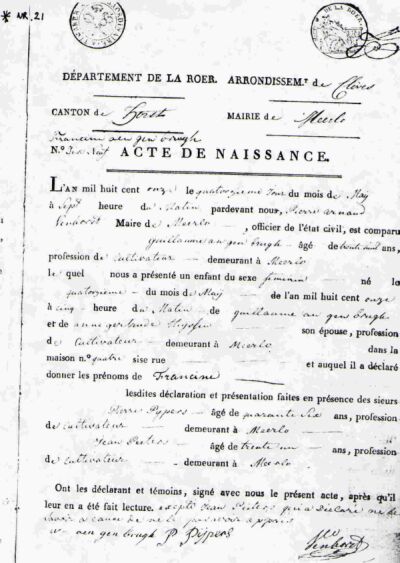 * NR. 21
DE LA ROER.
DÉPARTEMENT DE LA ROER. ARRONDISSEM.T de Clèves
CANTON de Horst MAIRIE de Meerlo
Francine aen gen brugh
N.° ACTE DE NAISSANCE.
L'AN mil huit cent onze le quatorzieme Jour du mois de May
à Sept heure du Matin pardevant nous, Pierre
Maire de Meerlo, officier de l'état civil, est comparu
guillaume aen gen brugh âgé de ans,
profession de Cultivateur demeurant à Meerlo
le quel nous a présenté un enfant du sexe feminin né le
quatorzieme du mois de May de l'an mil huit cent onze
à cinq heure du Matin de guillaume aen gen brugh
et de anne gertrude son épouse, profession
de Cultivateur demeurant à Meerlo dans la
maison n.° quatre sise rue et auquel il a déclaré
donner les prénoms de Francine
lesdites déclaration et présentation faites en présence des sieurs
Pierre Pijpers âgé de quarante Six ans, profession
de cultivateur demeurant à Meerlo
Jean Peeters âgé de trente un ans, profession
de cultivateur demeurant à Meerlo
Ont les déclarant et témoins, signé avec nous le présent acte, après qu'il
leur en a été fait lecture. excepté Jean Peeters qui a déclaré ne
a cause de ne le pouvoir appris
w aen gen brugh P Pijpers